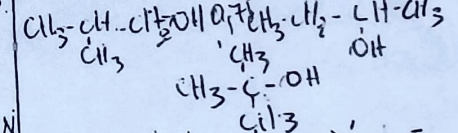 CH3-CH-CH2-OH CH3-CH2-CH-CH3
CH3 CH3 OH
CH3-C-OH
CH3
N